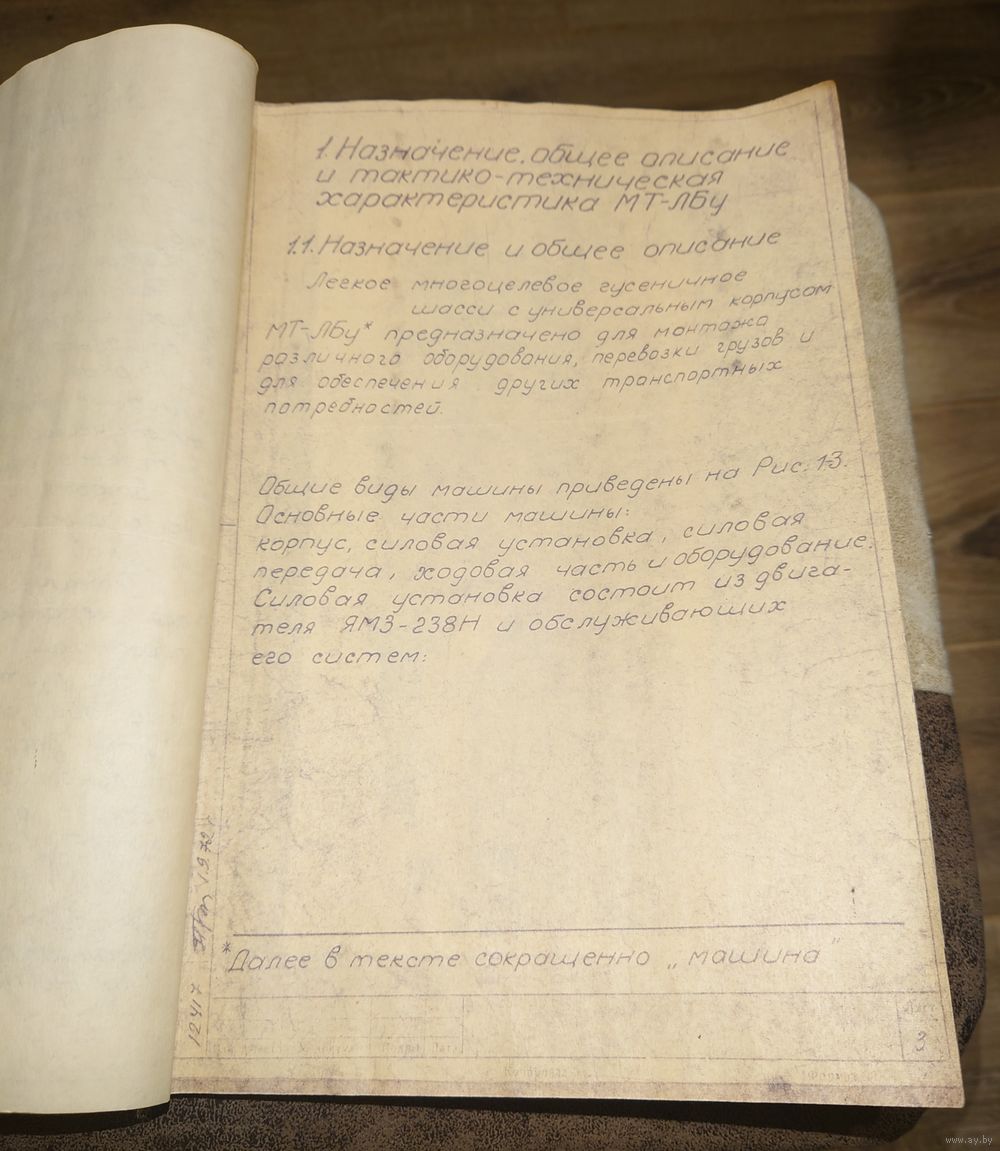 1. Назначение, общее описание
и тактико-техническая
характеристика МТ-ЛБу
1.1. Назначение и общее описание
Легкое многоцелевое гусеничное
шасси с универсальным корпусом
МТ-ЛБу* предназначено для монтажа
различного оборудования, перевозки грузов и
для обеспечения других транспортных
потребностей.
Общие виды машины приведены на Рис. 1-3.
Основные части машины:
корпус, силовая установка, силовая
передача, ходовая часть и оборудование.
Силовая установка состоит из двига-
теля ЯМЗ-238Н и обслуживающих
его систем:
* Далее в тексте сокращенно „машина"
12417
Лист
3
Копировал
Формат
www.ay.by